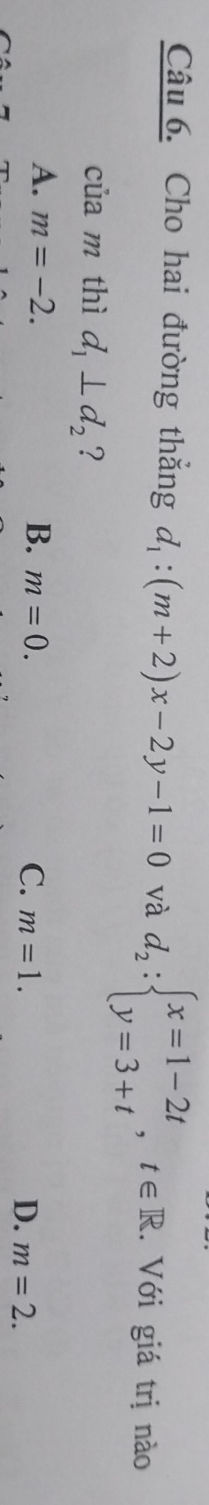 Câu 6. Cho hai đường thẳng d₁ : (m + 2)x − 2y − 1 = 0 và d₂ : { x = 1 − 2t ; y = 3 + t , t ∈ ℝ. Với giá trị nào
của m thì d₁ ⊥ d₂ ?
A. m = −2. B. m = 0. C. m = 1. D. m = 2.